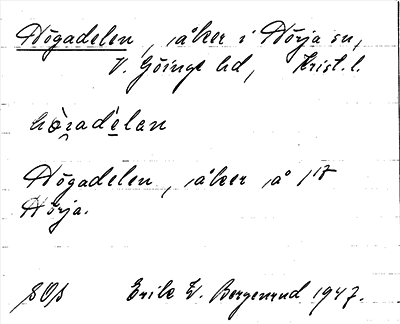 Högadelen, åker i Hörja sn,
V. Göinge hd, Krist. l.
Högadelen, åker å 1/17
Hörja.
SOS Erik W. Bergenrud 1947.